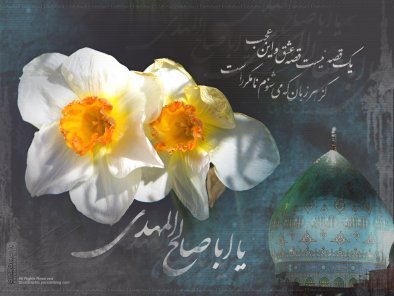 یک قصه بیش نیست قصه عشق و این عجب
کز هر زبان که می شنوم نامکرر است
یا ابا صالح المهدی
All Rights Reserved